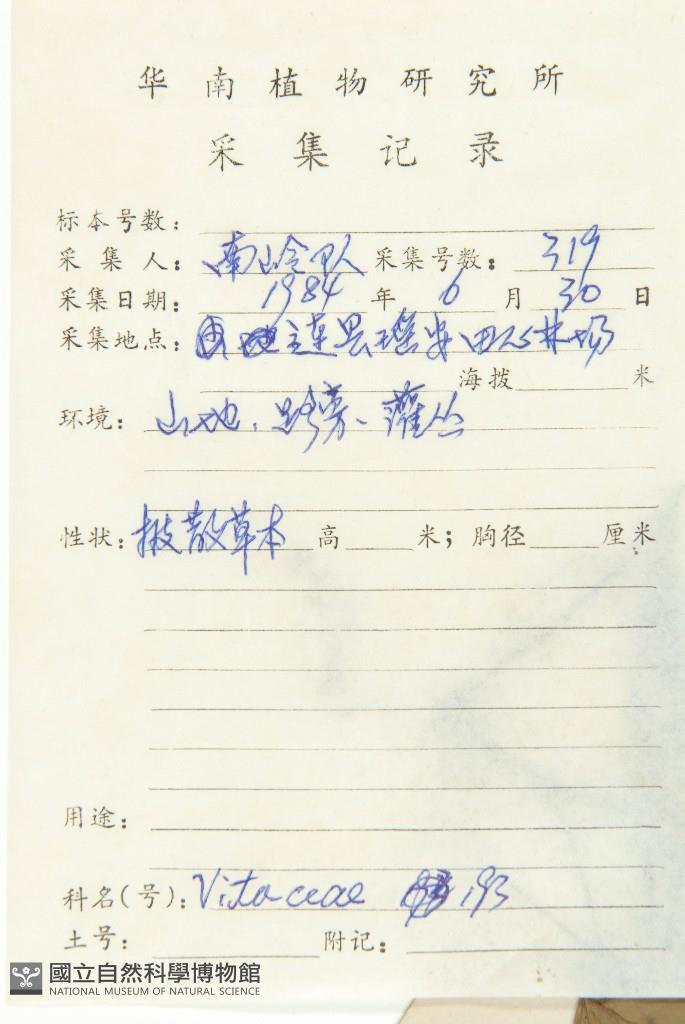 华南植物研究所
采集记录
标本号数：
采集人：南岭队 采集号数：319
采集日期：1984 年 6 月 30 日
采集地点：连县瑶安田心林场
海拨 米
环境：山地、路旁、灌丛
性状：披散草本 高 米；胸径 厘米
用途：
科名(号)：Vitaceae 193
土号： 附记：
國立自然科學博物館
NATIONAL MUSEUM OF NATURAL SCIENCE